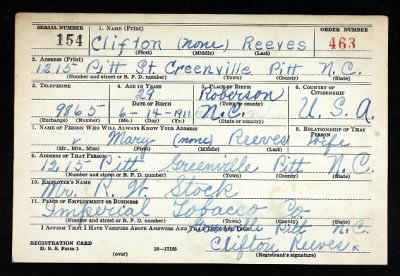 SERIAL NUMBER 1. NAME (Print) ORDER NUMBER
154 Clifton (none) Reeves 463
(First) (Middle) (Last)
2. ADDRESS (Print)
1215 Pitt St Greenville Pitt N.C.
(Number and street or R. F. D. number) (Town) (County) (State)
3. TELEPHONE 4. AGE IN YEARS 5. PLACE OF BIRTH 6. COUNTRY OF CITIZENSHIP
29 Roberson
DATE OF BIRTH (Town or county)
9865 6-14-1911 N.C. U.S.A.
(Exchange) (Number) (Mo.) (Day) (Yr.) (State or country)
7. NAME OF PERSON WHO WILL ALWAYS KNOW YOUR ADDRESS 8. RELATIONSHIP OF THAT PERSON
Mary (none) Reeves Wife
(Mr., Mrs., Miss) (First) (Middle) (Last)
9. ADDRESS OF THAT PERSON
1215 Pitt Greenville Pitt N.C.
(Number and street or R. F. D. number) (Town) (County) (State)
10. EMPLOYER'S NAME
Mr. R. W. Stock
11. PLACE OF EMPLOYMENT OR BUSINESS
Imperial Tobacco Co.
Greenville Pitt N.C.
(Number and street or R. F. D. number) (Town) (County) (State)
I AFFIRM THAT I HAVE VERIFIED ABOVE ANSWERS AND THAT THEY ARE TRUE.
REGISTRATION CARD Clifton Reeves
D. S. S. Form 1 16-17105
(over) (Registrant's signature)